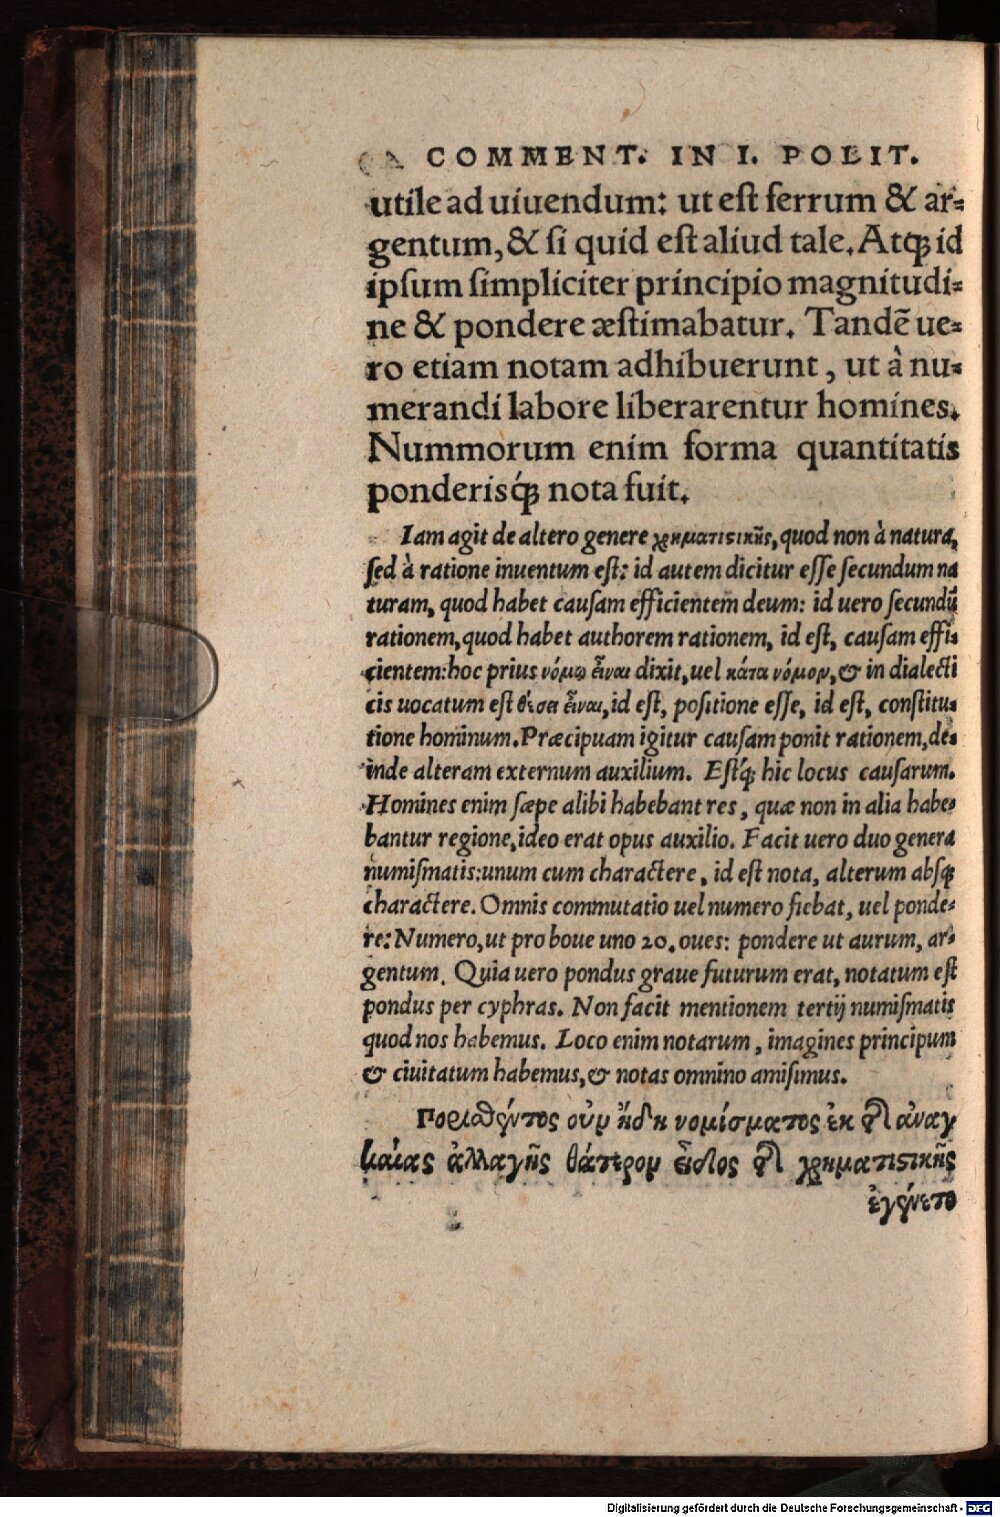 COMMENT. IN I. POLIT.
utile ad uiuendum: ut est ferrum & ar=
gentum, & si quid est aliud tale. Atq́ꝫ id
ipsum simpliciter principio magnitudi=
ne & pondere æstimabatur. Tandẽ ue=
ro etiam notam adhibuerunt, ut à nu=
merandi labore liberarentur homines.
Nummorum enim forma quantitatis
ponderisq́ꝫ nota fuit.
Iam agit de altero genere χρηματιστικῆς, quod non à natura,
sed à ratione inuentum est: id autem dicitur esse secundum na
turam, quod habet causam efficientem deum: id uero secundũ
rationem, quod habet authorem rationem, id est, causam effi=
cientem: hoc prius νόμῳ εἶναι dixit, uel κάτα νόμον, & in dialecti
cis uocatum est θέσει εἶναι, id est, positione esse, id est, constitu=
tione hominum. Præcipuam igitur causam ponit rationem, de=
inde alteram externum auxilium. Estq́ꝫ hic locus causarum.
Homines enim sæpe alibi habebant res, quæ non in alia habe=
bantur regione, ideo erat opus auxilio. Facit uero duo genera
numismatis: unum cum charactere, id est nota, alterum absqꝫ
charactere. Omnis commutatio uel numero fiebat, uel ponde=
re: Numero, ut pro boue uno 20. oues: pondere ut aurum, ar=
gentum. Quia uero pondus graue futurum erat, notatum est
pondus per cyphras. Non facit mentionem tertij numismatis
quod nos habemus. Loco enim notarum, imagines principum
& ciuitatum habemus, & notas omnino amisimus.
Πορισθέντος οὖν ἤδη νομίσματος ἐκ τῆς ἀναγ
καίας ἀλλαγῆς θάτερον εἶδος τῆς χρηματιστικῆς
ἐγένετο
Digitalisierung gefördert durch die Deutsche Forschungsgemeinschaft - DFG